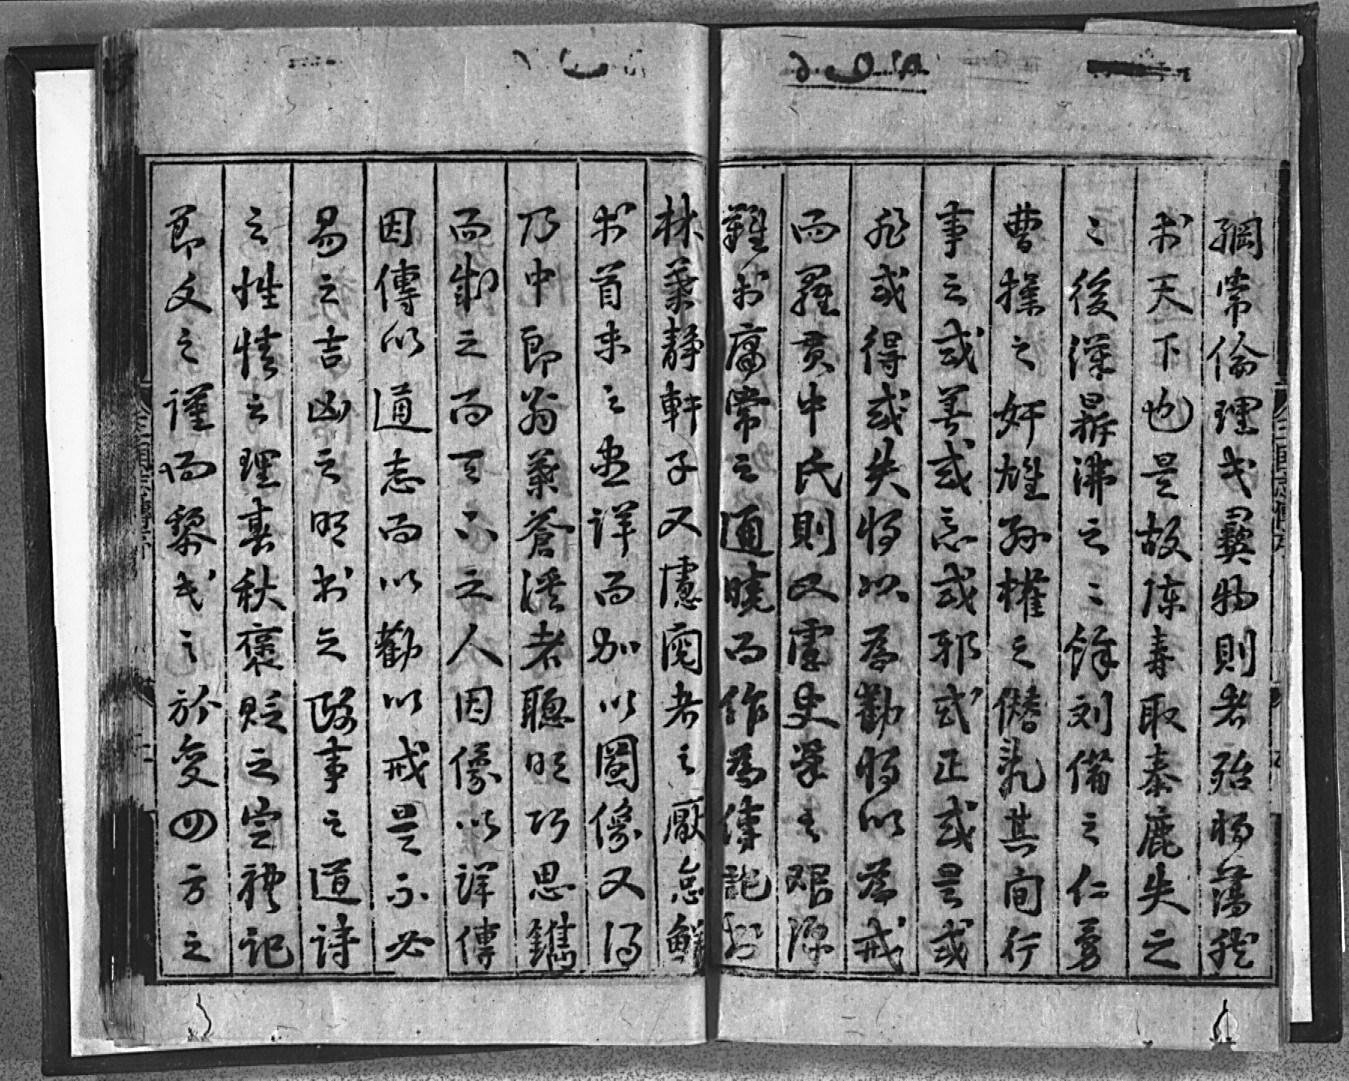 綱常倫理民彝物則者殆將蕩然
於天下也是故陳壽取秦鹿失之
之後漢鼎沸之之餘刘備之仁勇
曹操之奸雄孫權之僭乱其间行
事之或善或忘或邪或正或是或
非或得或失將以為勸將以為戒
而羅貫中氏則又慮史筆之艰深
難於庸常之通曉而作為傳記
林葉靜軒子又慮閱者之厭怠鮮
於首末之尽詳而加以圖像又得
乃中郎翁葉蒼溪者聰明巧思鐫
而制之而天下之人因像以詳傳
因傳以通志而以勸以戒是不必
易之吉凶之明书之政事之道詩
之性情之理春秋褒貶之定禮記
節文之謹而黎民之於变四方之